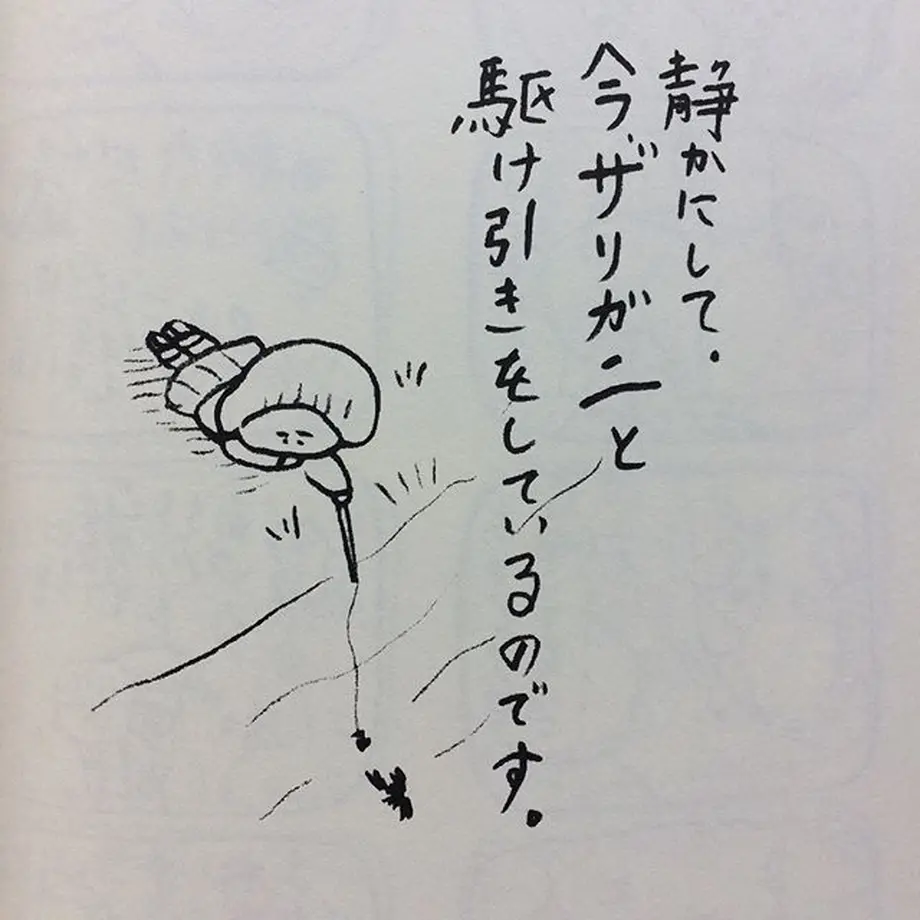 静かにして.
今、ザリガニと
駆け引きをしているのです。